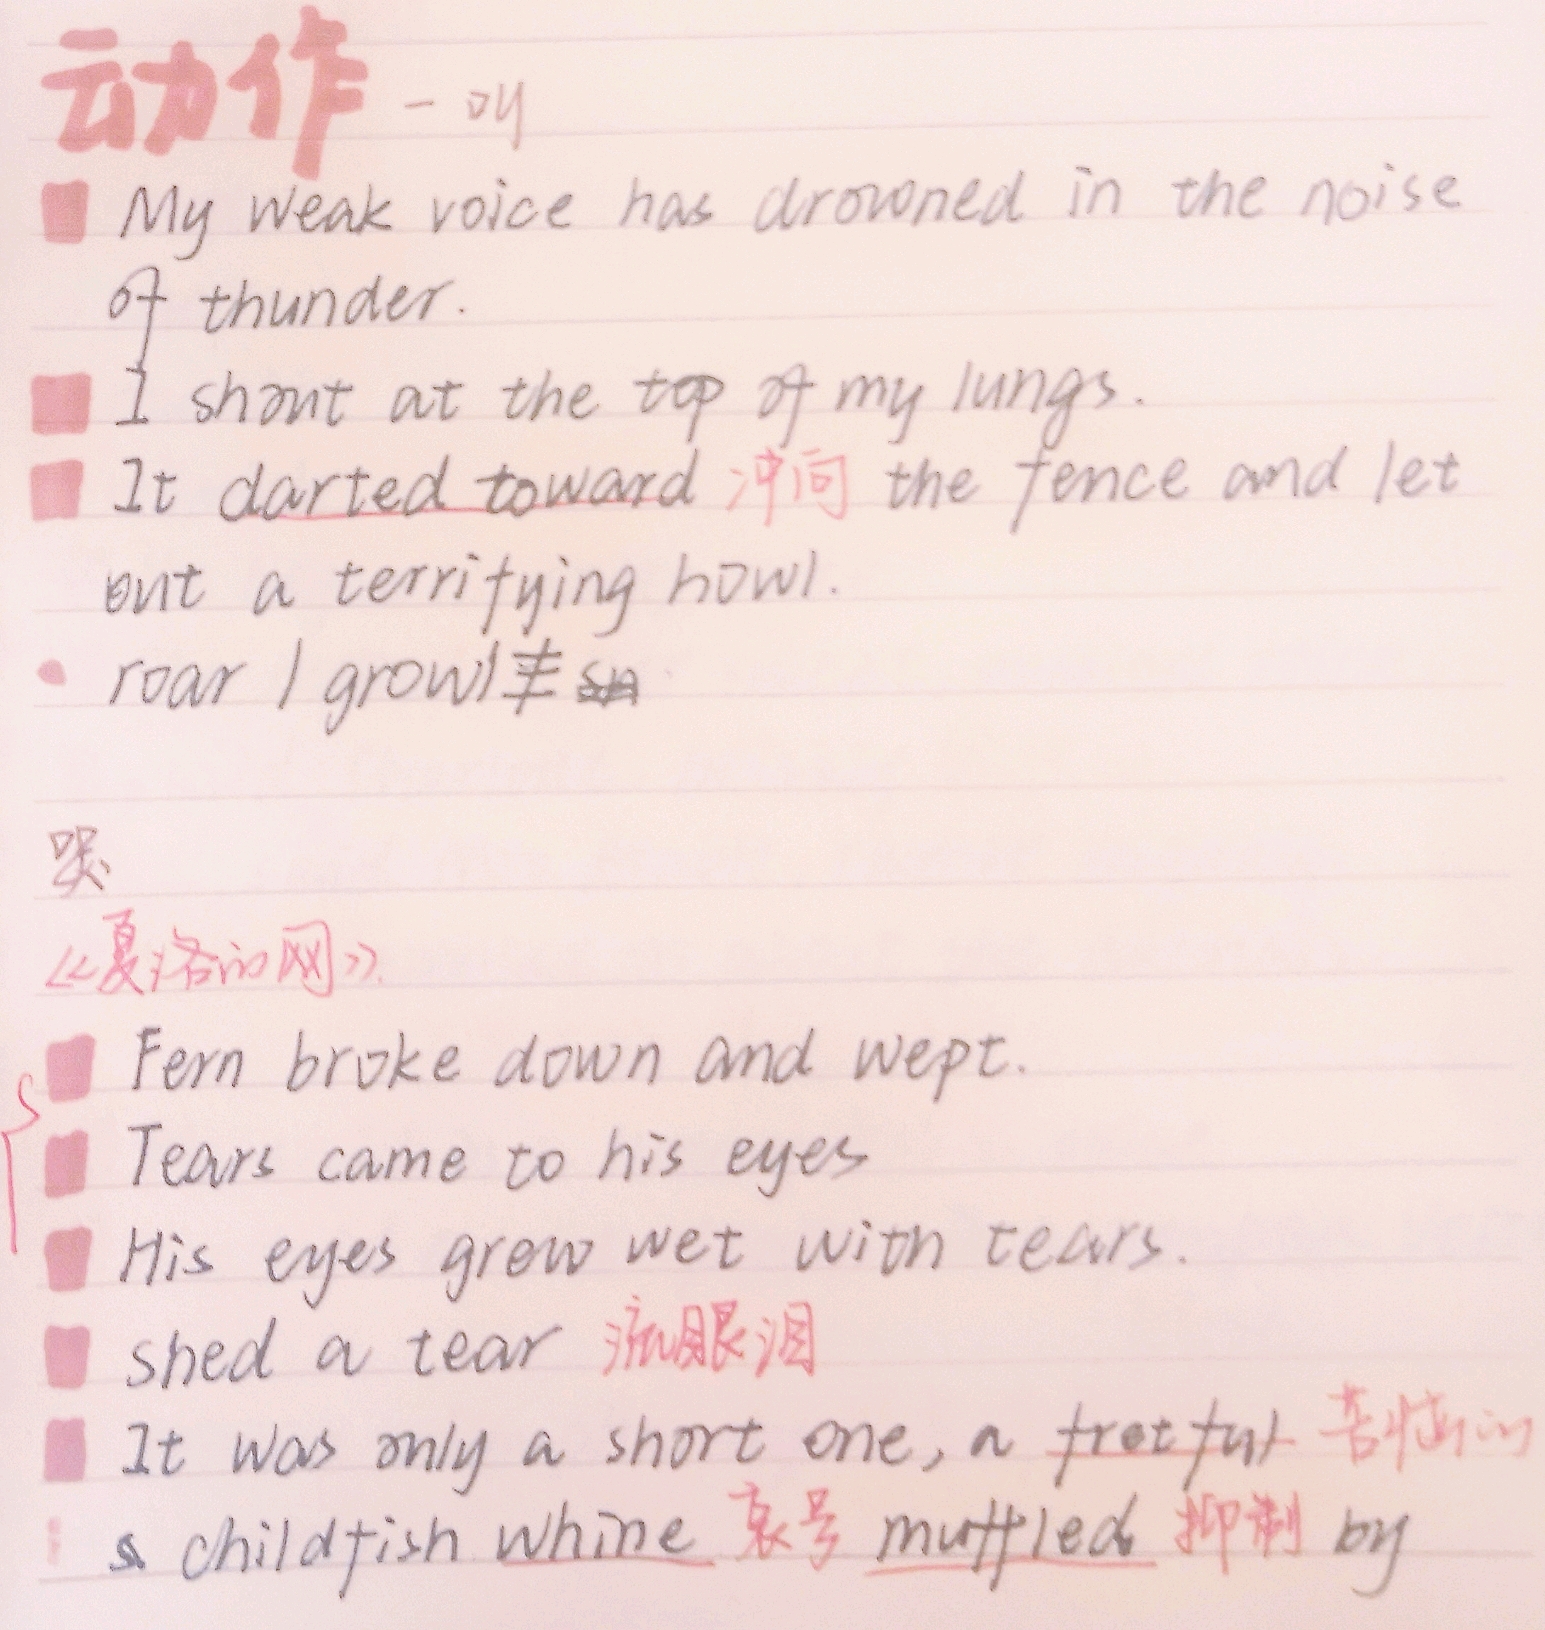 动作 - 叫
My weak voice has drowned in the noise
of thunder.
I shout at the top of my lungs.
It darted toward 冲向 the fence and let
out a terrifying howl.
roar / growl
哭
《夏洛的网》
Fern broke down and wept.
Tears came to his eyes
His eyes grew wet with tears.
shed a tear 流眼泪
It was only a short one, a fretful 苦恼的
childfish whine 哀号 muffled 抑制 by